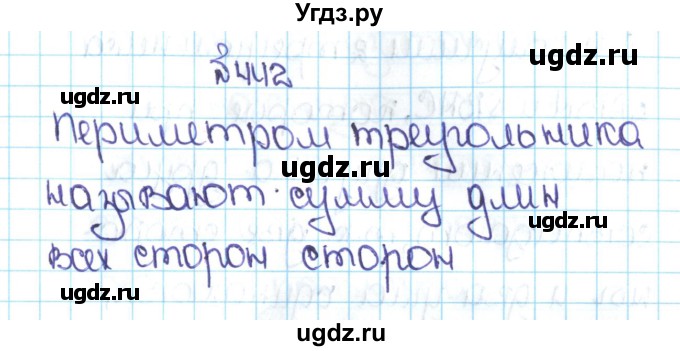 Угдз.ру
ugdz.ru
ugdz.ru
№ 442
ugdz.ru
Периметром треугольника
ugdz.ru
называют сумму длин
ugdz.ru
ugdz.ru
всех сторон сторон
ugdz.ru
ugdz.ru
ugdz.ru